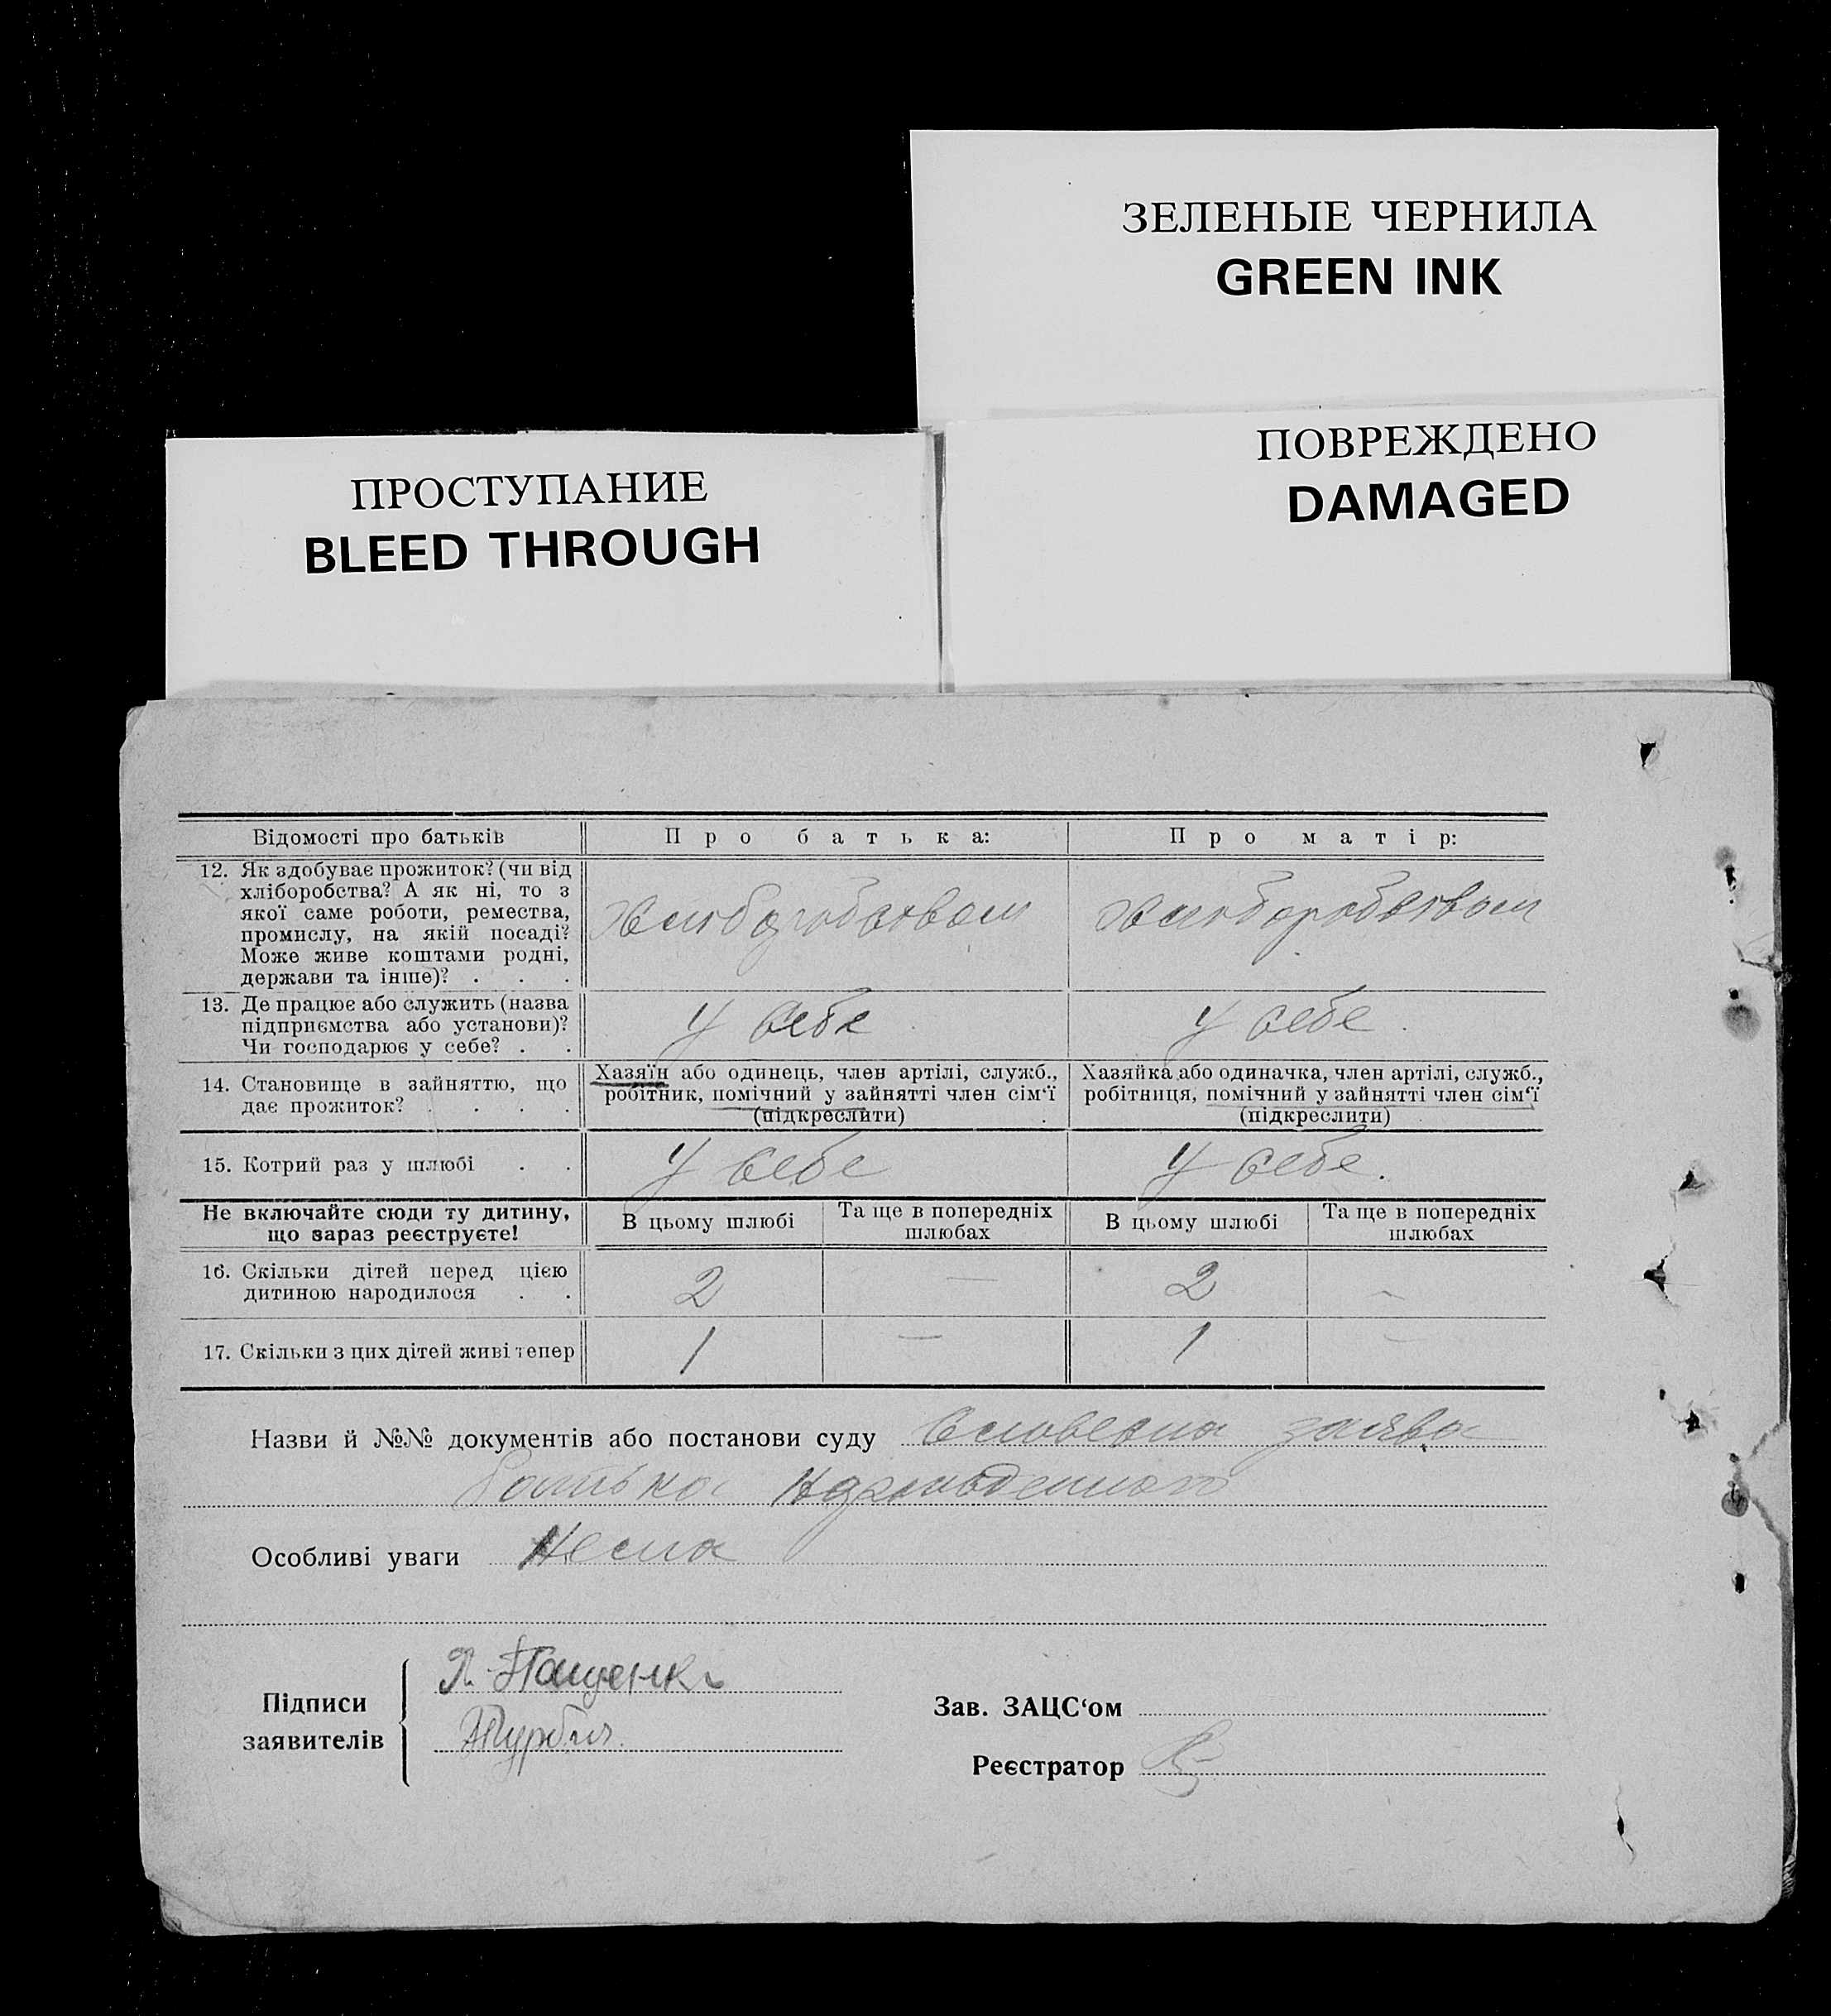 ЗЕЛЕНЫЕ ЧЕРНИЛА
GREEN INK
ПОВРЕЖДЕНО
DAMAGED
ПРОСТУПАНИЕ
BLEED THROUGH
Відомості про батьків
Про батька:
Про матір:
12. Як здобуває прожиток? (чи від
хліборобства? А як ні, то з
якої саме роботи, ремества,
промислу, на якій посаді?
Може живе коштами родні,
держави та інше)? . . .
Хлиборобством
Хлиборобством
13. Де працює або служить (назва
підприємства або установи)?
Чи господарює у себе? . .
У себе
У себе.
14. Становище в зайняттю, що
дає прожиток? . . . .
Хазяїн або одинець, член артілі, служб.,
робітник, помічний у зайнятті член сім‘ї
(підкреслити)
Хазяйка або одиначка, член артілі, служб.,
робітниця, помічний у зайнятті член сім‘ї
(підкреслити)
15. Котрий раз у шлюбі . .
У себе
У себе.
Не включайте сюди ту дитину,
що зараз реєструєте!
В цьому шлюбі
Та ще в попередніх
шлюбах
В цьому шлюбі
Та ще в попередніх
шлюбах
16. Скільки дітей перед цією
дитиною народилося . .
2 — 2 -
17. Скільки з цих дітей живі тепер
1 — 1 —
Назви й №№ документів або постанови суду Словесна заява
батька
Особливі уваги Нема
Підписи
заявителів
П. Пащенко
Зав. ЗАЦС‘ом
Реєстратор